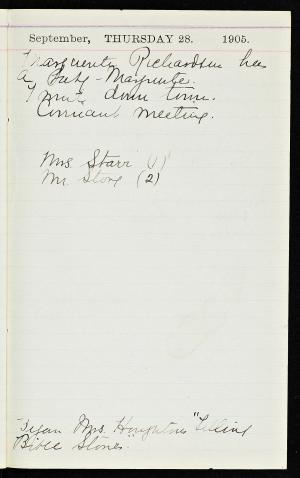 September, THURSDAY 28. 1905.
Marguerite Richardson has
a baby - Marguerite.
I went down town.
Covenant meeting.
Mrs Starr (1)
Mr. Stone (2)
Began Mrs. Houghton's "Telling
Bible Stories"